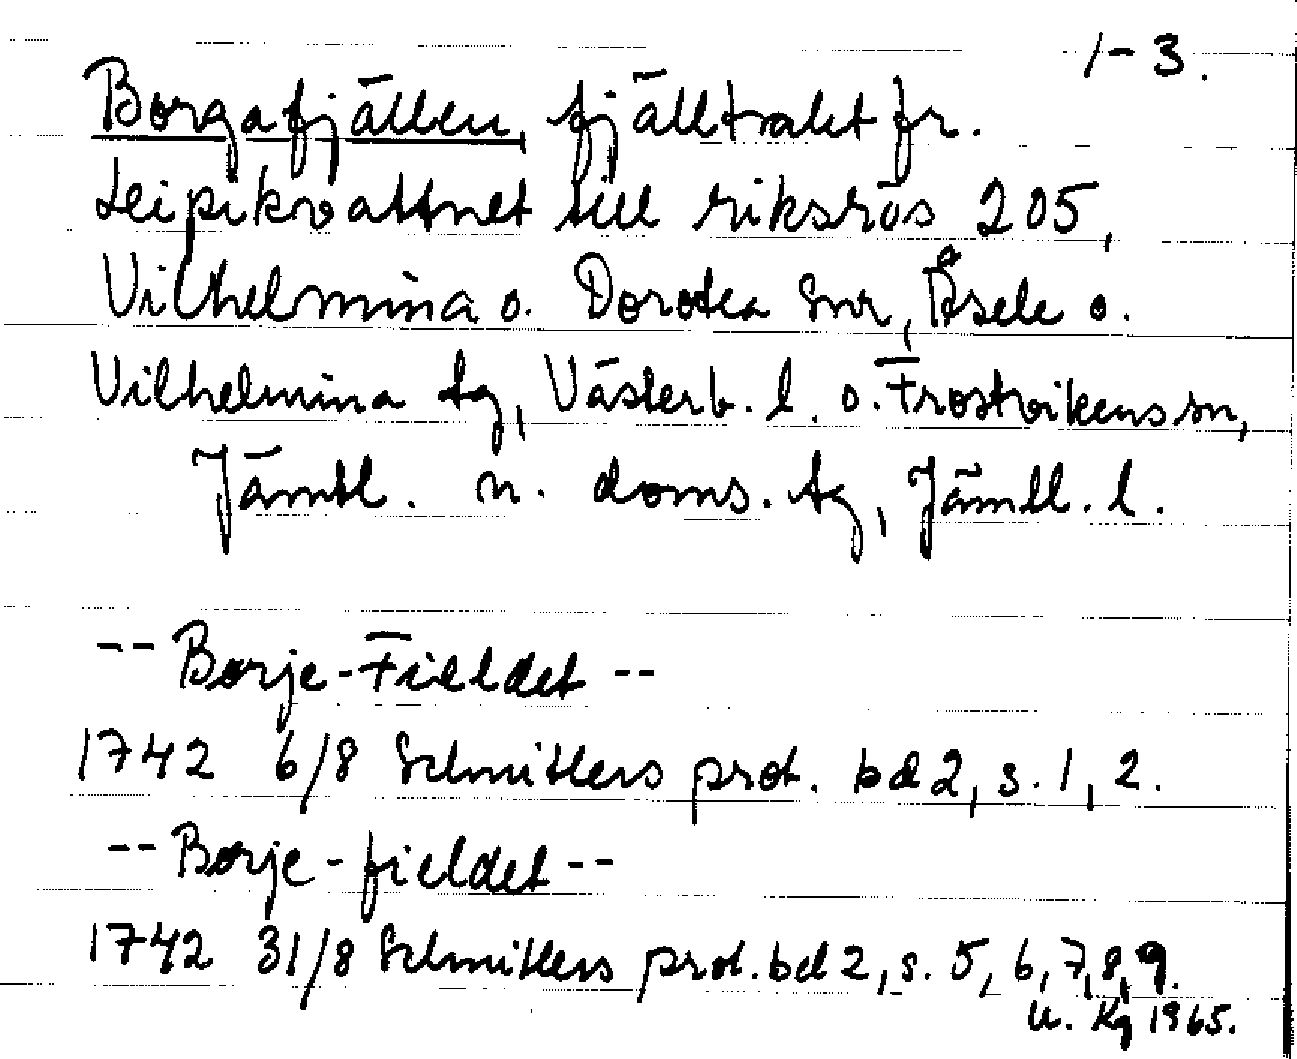 1-3.
Borgafjällen, fjälltrakt fr.
Leipikvattnet till riksrös 205,
Vilhelmina o. Dorotea snr, Åsele o.
Vilhelmina tg, Västerb. l. o. Frostvikens sn,
Jämtl. n. doms. tg, Jämtl. l.
-- Borje-Fieldet --
1742 6/8 Schnitlers prot. bd 2, s. 1, 2.
-- Borje-fieldet --
1742 31/8 Schnitlers prot. bd 2, s. 5, 6, 7, 8, 9.
U. Kg 1965.